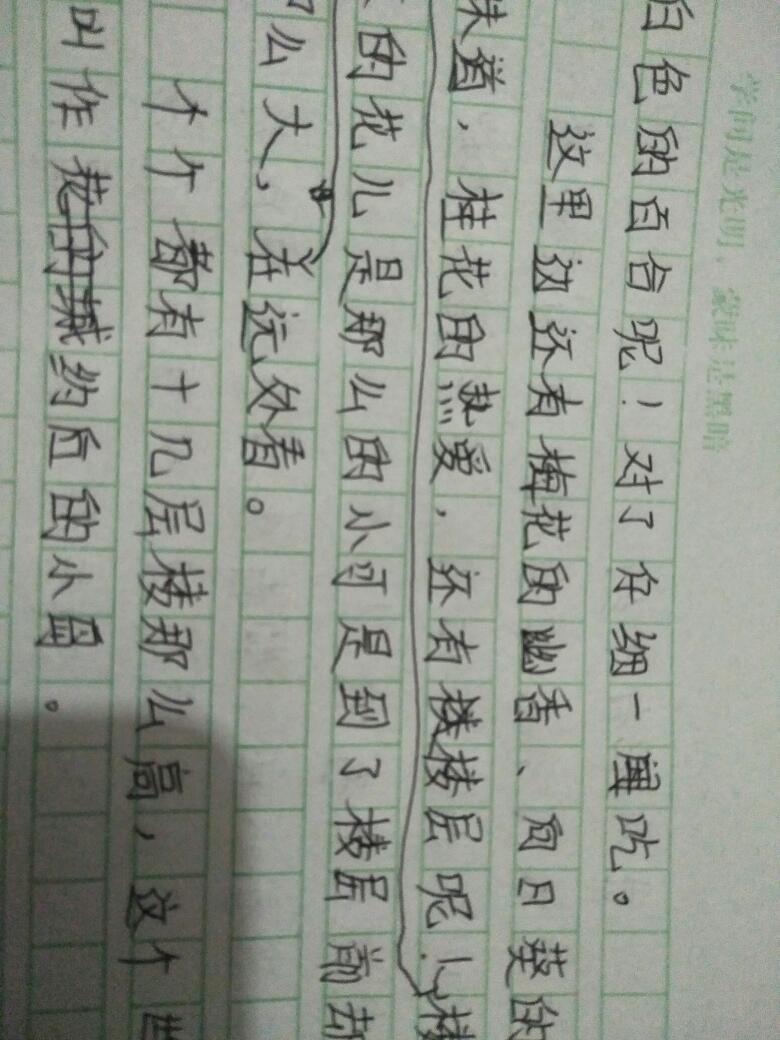 学问是光明，蒙昧是黑暗
白色的百合呢！对了仔细一
这里边还有梅花的幽香、向日葵的
味道，桂花的热爱，还有楼层呢！楼
的花儿是那么的小可是到了楼层前却
那么大，在远处看。
个个都有十几层楼那么高，这个世
叫作花的城约丘的小国。